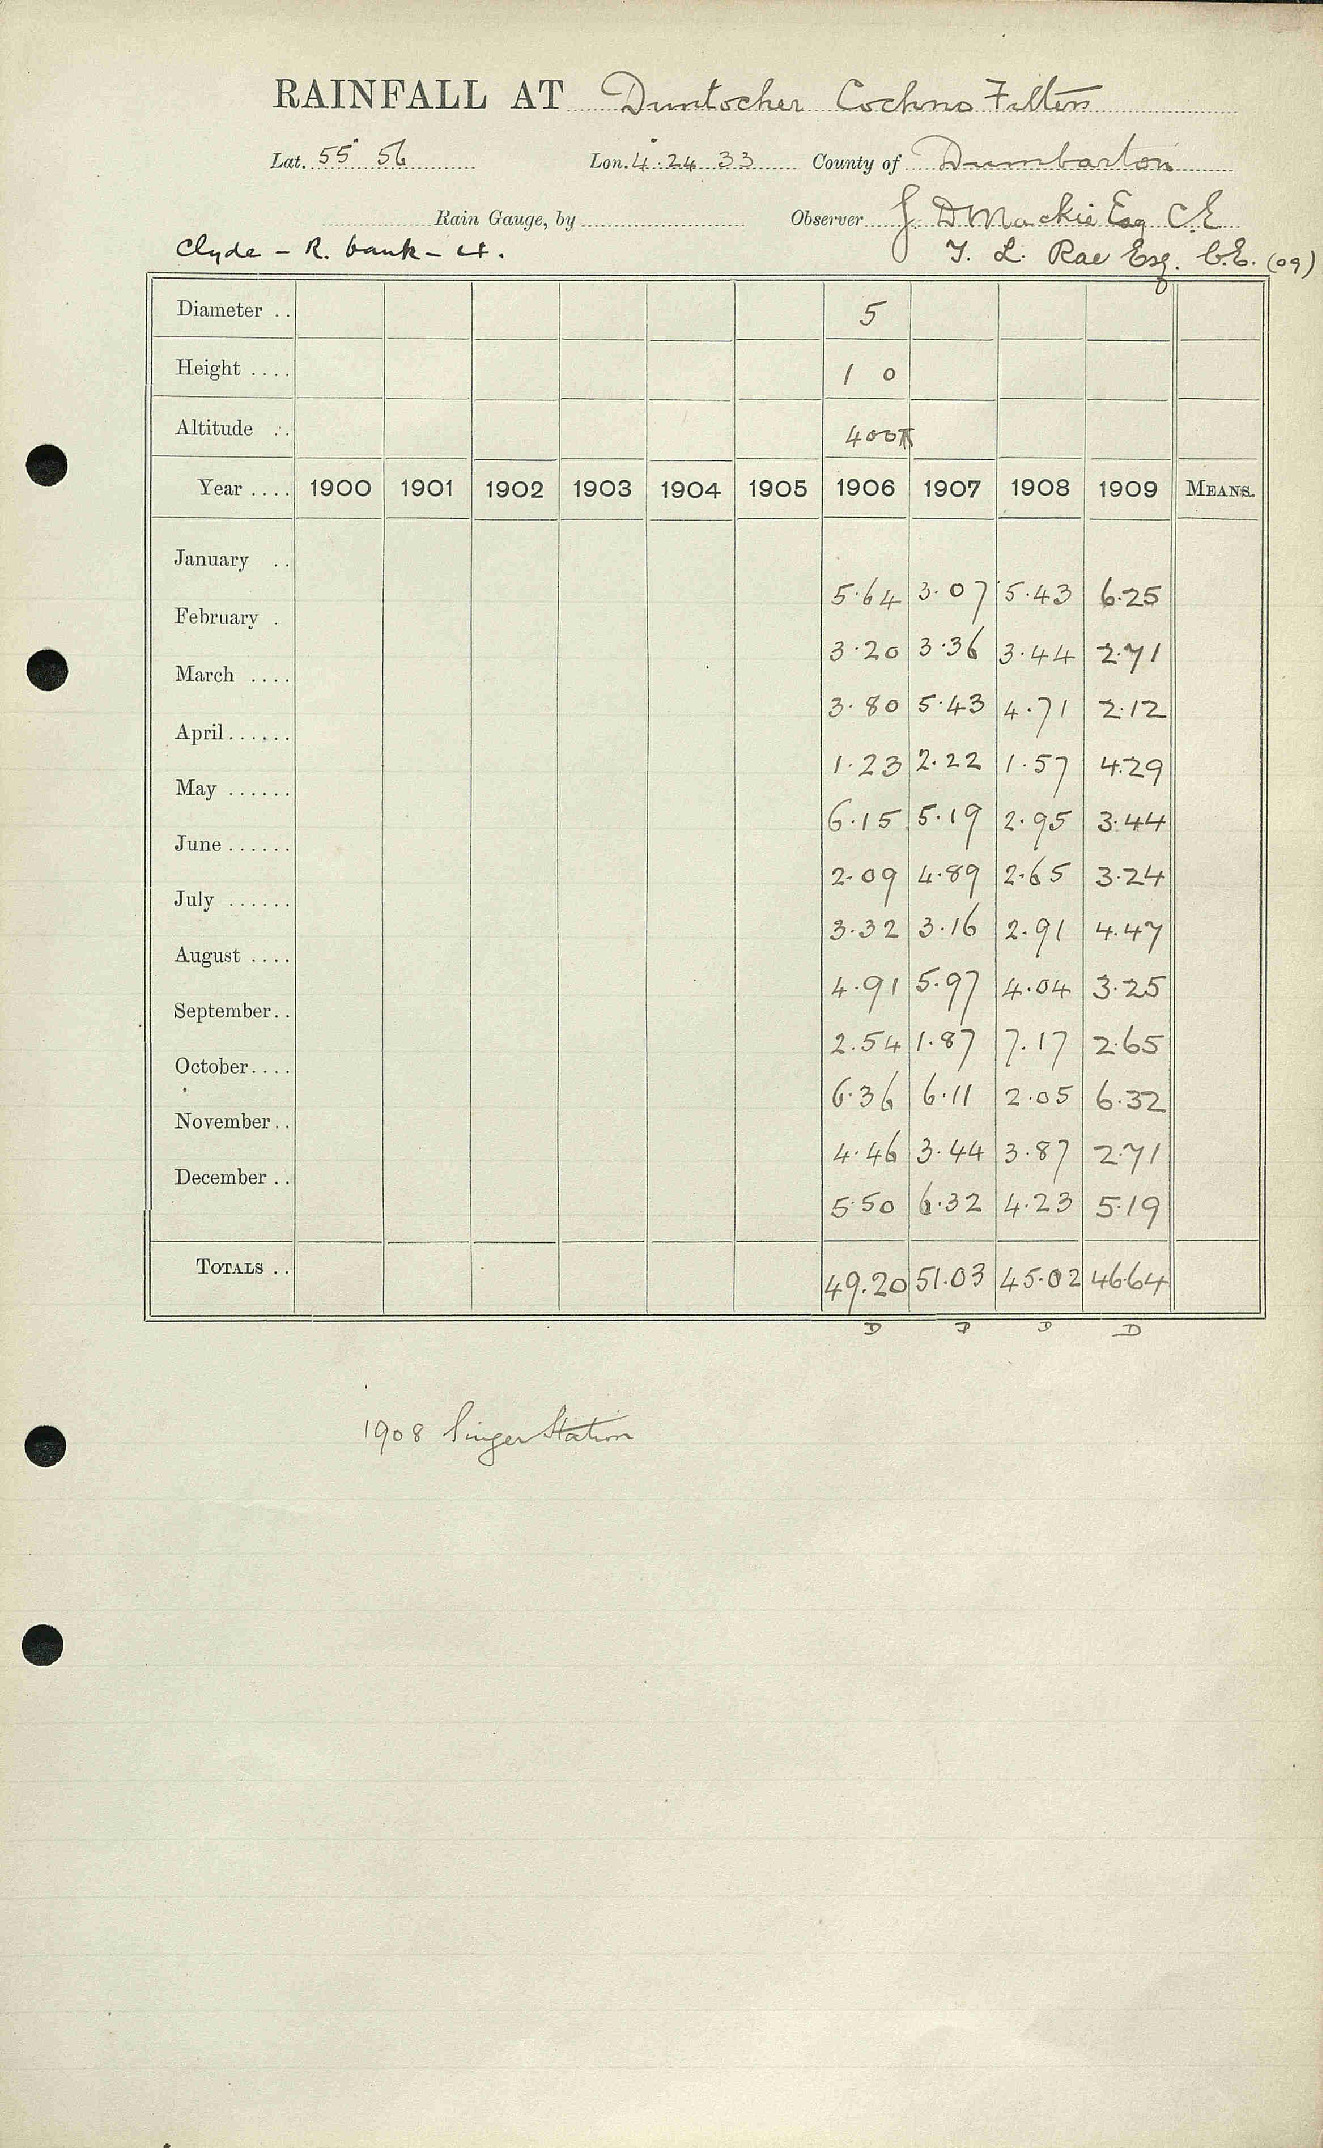 RAINFALL AT Duntocher Cochno Filters
Lat. 55° 56 Lon. 4.24.33 County of Dumbarton
Rain Gauge, by Observer J D Mackie Esq C.E
Clyde - R. bank - 4. T. L. Rae Esq. C.E. (09)
Diameter .. 5
Height .... 1 0
Altitude .. 400
Year .... 1900 1901 1902 1903 1904 1905 1906 1907 1908 1909 MEANS.
January .. 5.64 3.07 5.43 6.25
February . 3.20 3.36 3.44 2.71
March .... 3.80 5.43 4.71 2.12
April ...... 1.23 2.22 1.57 4.29
May ...... 6.15 5.19 2.95 3.44
June ...... 2.09 4.89 2.65 3.24
July ...... 3.32 3.16 2.91 4.47
August .... 4.91 5.97 4.04 3.25
September .. 2.54 1.87 7.17 2.65
October .... 6.36 6.11 2.05 6.32
November .. 4.46 3.44 3.87 2.71
December .. 5.50 6.32 4.23 5.19
TOTALS .. 49.20 51.03 45.02 46.64
D D D D
1908 Singer Station